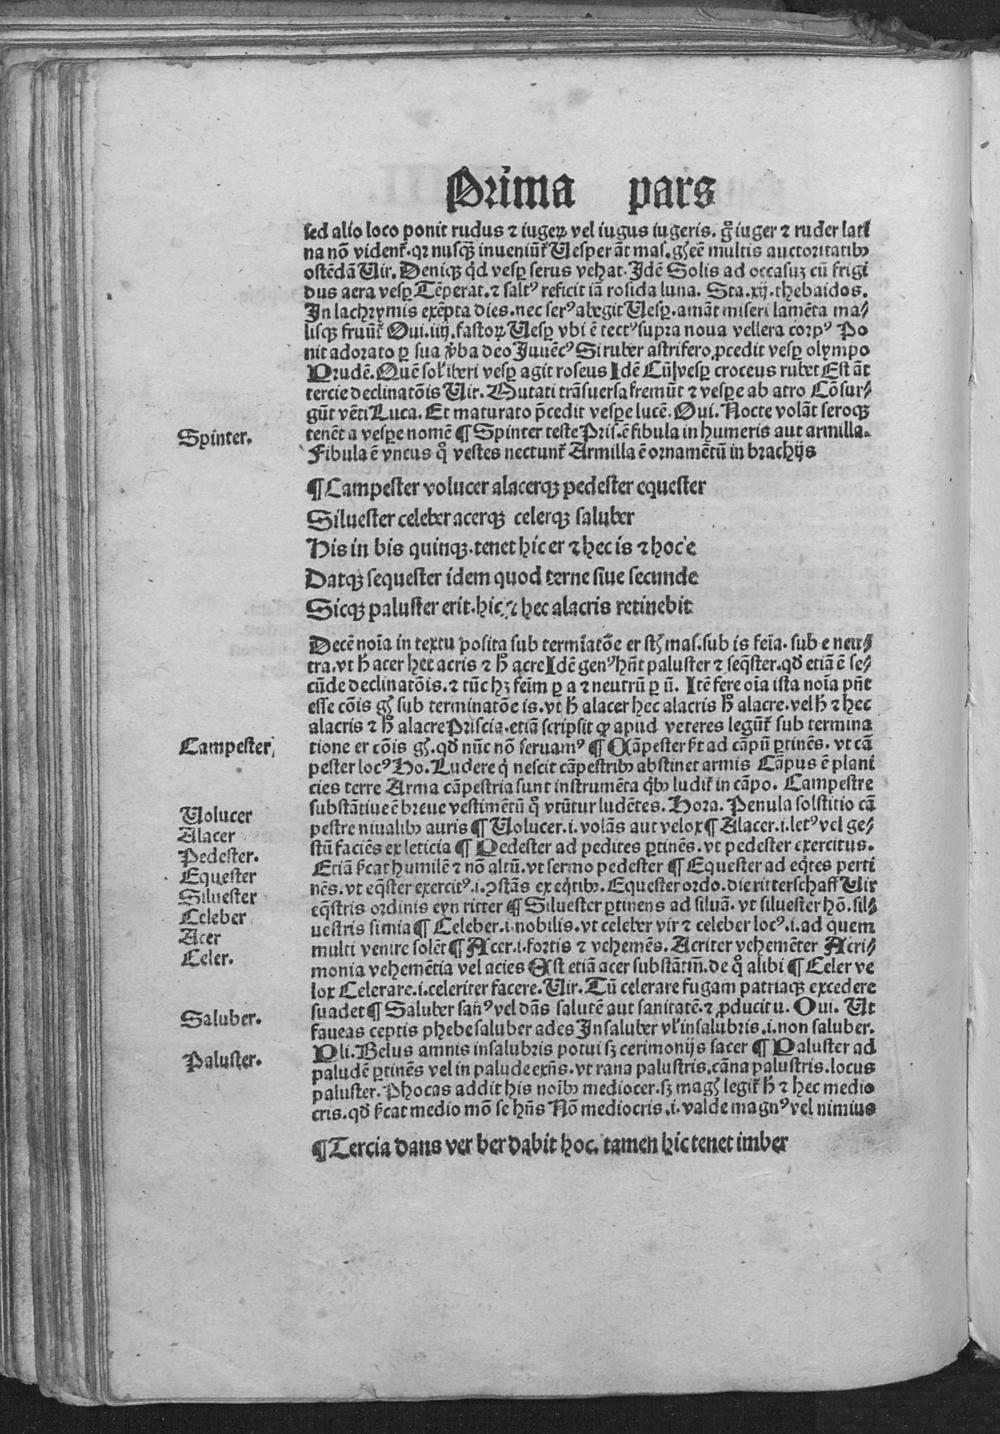 Prima pars
sed alio loco ponit rudus ⁊ iugeꝝ vel iugus iugeris. g̊ iuger ⁊ ruder lati
na nō vident᷑. qꝛ nusqꝫ inveniūt᷑ Uesper āt mas. gñ̄ēē multis auctoritatibꝰ
ostēdā Uir. Deniqꝫ qd̄ vesꝑ serus vehat. Idē Solis ad occasuꝫ cū frigi
dus aera vesꝑ Tēperat. ⁊ saltꝰ reficit iā rosida luna. Sta. xij. thebaidos.
In lachrymis exēpta dies. nec serꝰ abegit Uesꝑ. amāt miseri lamēta ma⸗
lisqꝫ fruūt᷑ Oui. iiij. fastoꝝ Uesꝑ vbi ē tectꝰ supra noua vellera corpꝰ Po
nit adorato ꝑ sua v̄ba deo Juuēcꝰ Si ruber astrifero ꝓcedit vesꝑ olympo
Prudē. Quē sol iberi vesꝑ agit roseus Idē Cū vesꝑ croceus rubet Est āt
tercie declinatōis Uir. Mutati trāsuersa fremūt ⁊ vesꝑe ab atro Cōsur⸗
gūt vēti Luca. Et maturato p̄cedit vesꝑe lucē. Oui. Nocte volāt seroqꝫ
Spinter.
tenēt a vesꝑe nomē ¶ Spinter teste Pris. ē fibula in humeris aut armilla.
Fibula ē vncus q̊ vestes nectunt᷑ Armilla ē ornamētū in brachijs
¶ Campester volucer alacerqꝫ pedester equester
Siluester celeber acerqꝫ celerqꝫ saluber
His in bis quinqꝫ. tenet hic er ⁊ hec is ⁊ hoc e
Datqꝫ sequester idem quod terne siue secunde
Sicqꝫ paluster erit. hic ⁊ hec alacris retinebit
Decē noīa in textu posita sub termīatōe er sūt mas. sub is feīa. sub e neu⸗
tra. vt h̄ acer hec acris ⁊ h̊ acre Idē genꝰ hn̄t paluster ⁊ seq̄ster. qd̄ etiā ē se⸗
cūde declinatōis. ⁊ tūc hꝫ feīm ꝑ a ⁊ neutrū ꝑ ū. Itē fere oīa ista noīa pn̄t
esse cōis gn̄ sub terminatōe is. vt h̄ alacer hec alacris h̊ alacre. vel h̄ ⁊ hec
alacris ⁊ h̊ alacre Priscia. etiā scripsit ꝙ apud veteres legūt᷑ sub termina
Campester,
tione er cōis gn̄. qd̄ nūc nō seruamꝰ ¶ Cāpester ē ad cāpū ꝑtinēs. vt cā
pester locꝰ Ho. Ludere q̇ nescit cāpestribꝰ abstinet armis Cāpus ē plani
cies terre Arma cāpestria sunt instrumēta qͥbꝰ ludit᷑ in cāpo. Campestre
substātiue ē breue vestimētū q̊ vtūtur ludētes. Hora. Penula solstitio cā
Uolucer
pestre niualibꝰ auris ¶ Uolucer. i. volās aut velox ¶ Alacer. i. letꝰ vel ge⸗
Alacer
stū faciēs ex leticia ¶ Pedester ad pedites ꝑtinēs. vt pedester exercitus.
Pedester.
Etiā s̄cat humilē ⁊ nō altū. vt sermo pedester ¶ Equester ad eq̇tes perti
Equester
nēs. vt eq̄ster exercitꝰ. i. ꝯstās ex eq̇tibꝰ. Equester ordo. die ritterschaff Uir
Siluester
eq̄stris ordinis eyn ritter ¶ Siluester ꝑtinens ad siluā. vt siluester hō. sil⸗
Celeber
uestris simia ¶ Celeber. i. nobilis. vt celeber vir ⁊ celeber locꝰ. i. ad quem
Acer
multi venire solēt ¶ Acer. i. fortis ⁊ vehemēs. Acriter vehemēter Acri⸗
Celer.
monia vehemētia vel acies Est etiā acer substātīn. de q̊ alibi ¶ Celer ve
lox Celerare. i. celeriter facere. Uir. Tū celerare fugam patriaqꝫ excedere
Saluber.
suadet ¶ Saluber sanꝰ vel dās salutē aut sanitatē. ⁊ ꝓducit u. Oui. Ut
faueas ceptis phebe saluber ades Insaluber vl̓ insalubris. i. non saluber.
Pli. Belus amnis insalubris potui sꝫ cerimonijs sacer ¶ Paluster ad
Paluster.
paludē ꝑtinēs vel in palude exn̄s. vt rana palustris. cāna palustris. locus
paluster. Phocas addit his noībꝰ mediocer. sꝫ magꝭ legit᷑ h̄ ⁊ hec medio
cris. qd̄ s̄cat medio mō se hn̄s Nō mediocris. i. valde magnꝰ vel nimius
¶ Tercia dans ver ber dabit hoc. tamen hic tenet imber